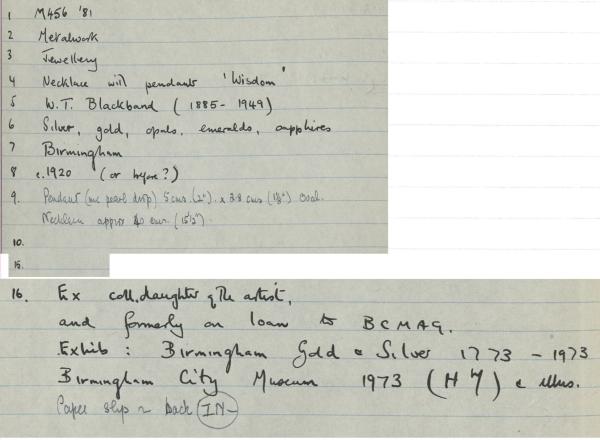 1 M456 '81
2 Metalwork
3 Jewellery
4 Necklace with pendant 'Wisdom'
5 W.T. Blackband (1885-1949)
6 Silver, gold, opals, emeralds, sapphires
7 Birmingham
8 c.1920 (or before?)
9. Pendant (inc pearl drop) 5 cms. (2") x 3.8 cms (1½") Oval.
Necklace approx 40 cms. (15½")
10.
15.
16. Ex coll. daughter of the artist,
and formerly on loan to BCMAG.
Exhib: Birmingham Gold & Silver 1773-1973
Birmingham City Museum 1973 (H 47) & illus.
Paper slip in back IN-